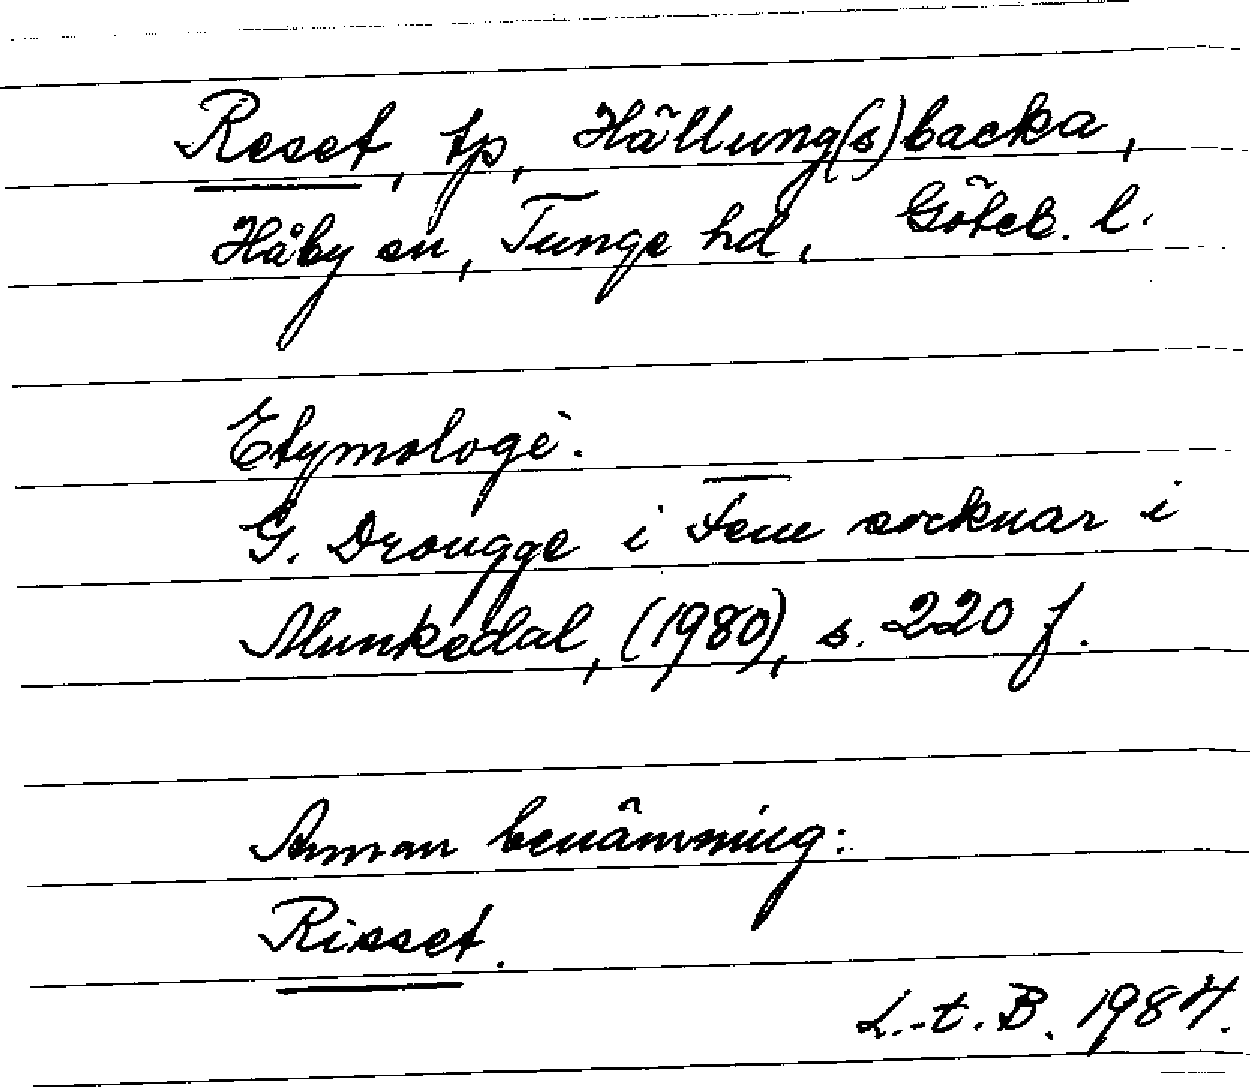 Reset, tp, Hällung(s)backa,
Håby sn, Tunge hd, Göteb. l.
Etymologi.
G. Drougge i Fem socknar i
Munkedal, (1980), s. 220 f.
Annan benämning:
Risset.
L.-t. B. 1984.